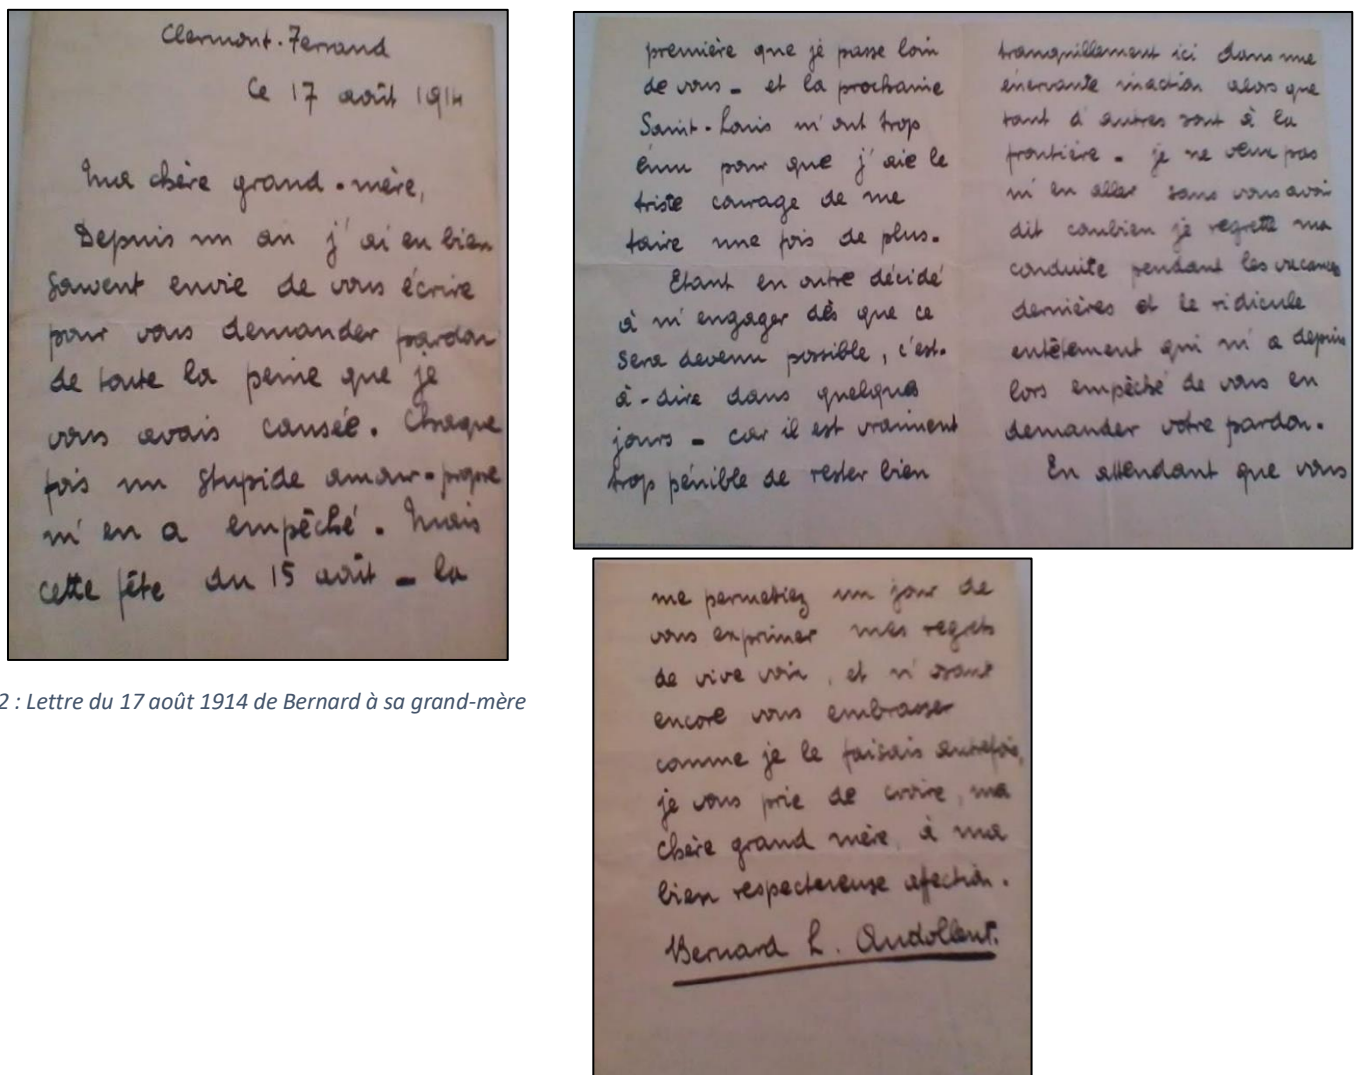 Clermont-Ferrand
Ce 17 août 1914
Ma chère grand-mère,
Depuis un an j'ai eu bien
souvent envie de vous écrire
pour vous demander pardon
de toute la peine que je
vous avais causée. Chaque
fois un stupide amour-propre
m'en a empêché. Mais
cette fête du 15 août - la
première que je passe loin
de vous - et la prochaine
Saint-Louis m'ont trop
ému pour que j'aie le
triste courage de me
taire une fois de plus.
Etant en outre décidé
à m'engager dès que ce
sera devenu possible, c'est-
à-dire dans quelques
jours - car il est vraiment
trop pénible de rester bien
tranquillement ici dans une
énervante inaction alors que
tant d'autres sont à la
frontière - je ne veux pas
m'en aller sans vous avoir
dit combien je regrette ma
conduite pendant les vacances
dernières et le ridicule
entêtement qui m'a depuis
lors empêché de vous en
demander votre pardon.
En attendant que vous
me permettiez un jour de
vous exprimer mes regrets
de vive voix, et n'osant
encore vous embrasser
comme je le faisais autrefois,
je vous prie de croire, ma
chère grand mère, à ma
bien respectueuse affection.
Bernard L. Audollent.
2 : Lettre du 17 août 1914 de Bernard à sa grand-mère